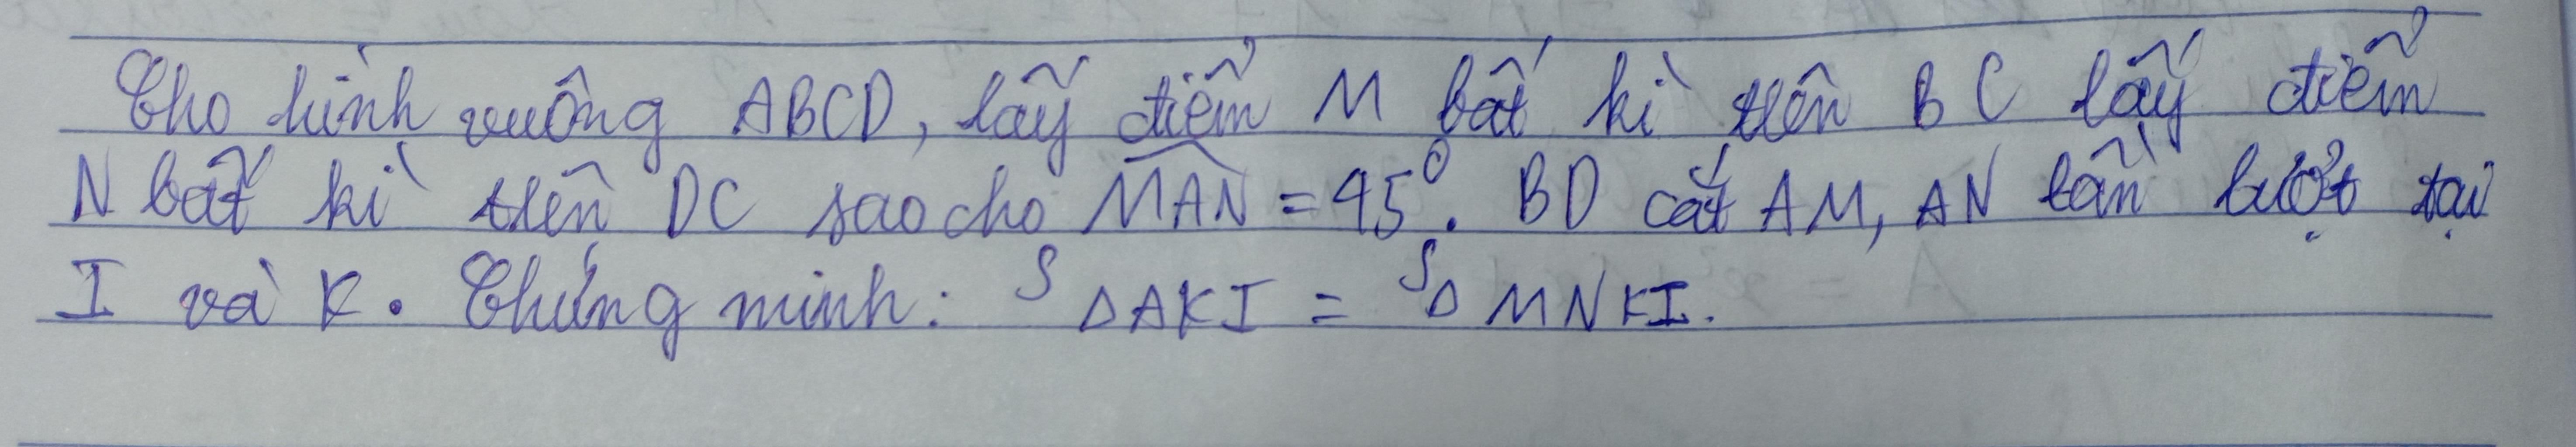 Cho hình vuông ABCD, lấy điểm M bất kì trên BC lấy điểm
N bất kì trên DC sao cho \widehat{MAN} = 45⁰. BD cắt AM, AN lần lượt tại
I và K. Chứng minh: S ΔAKI = SΔ MNKI.